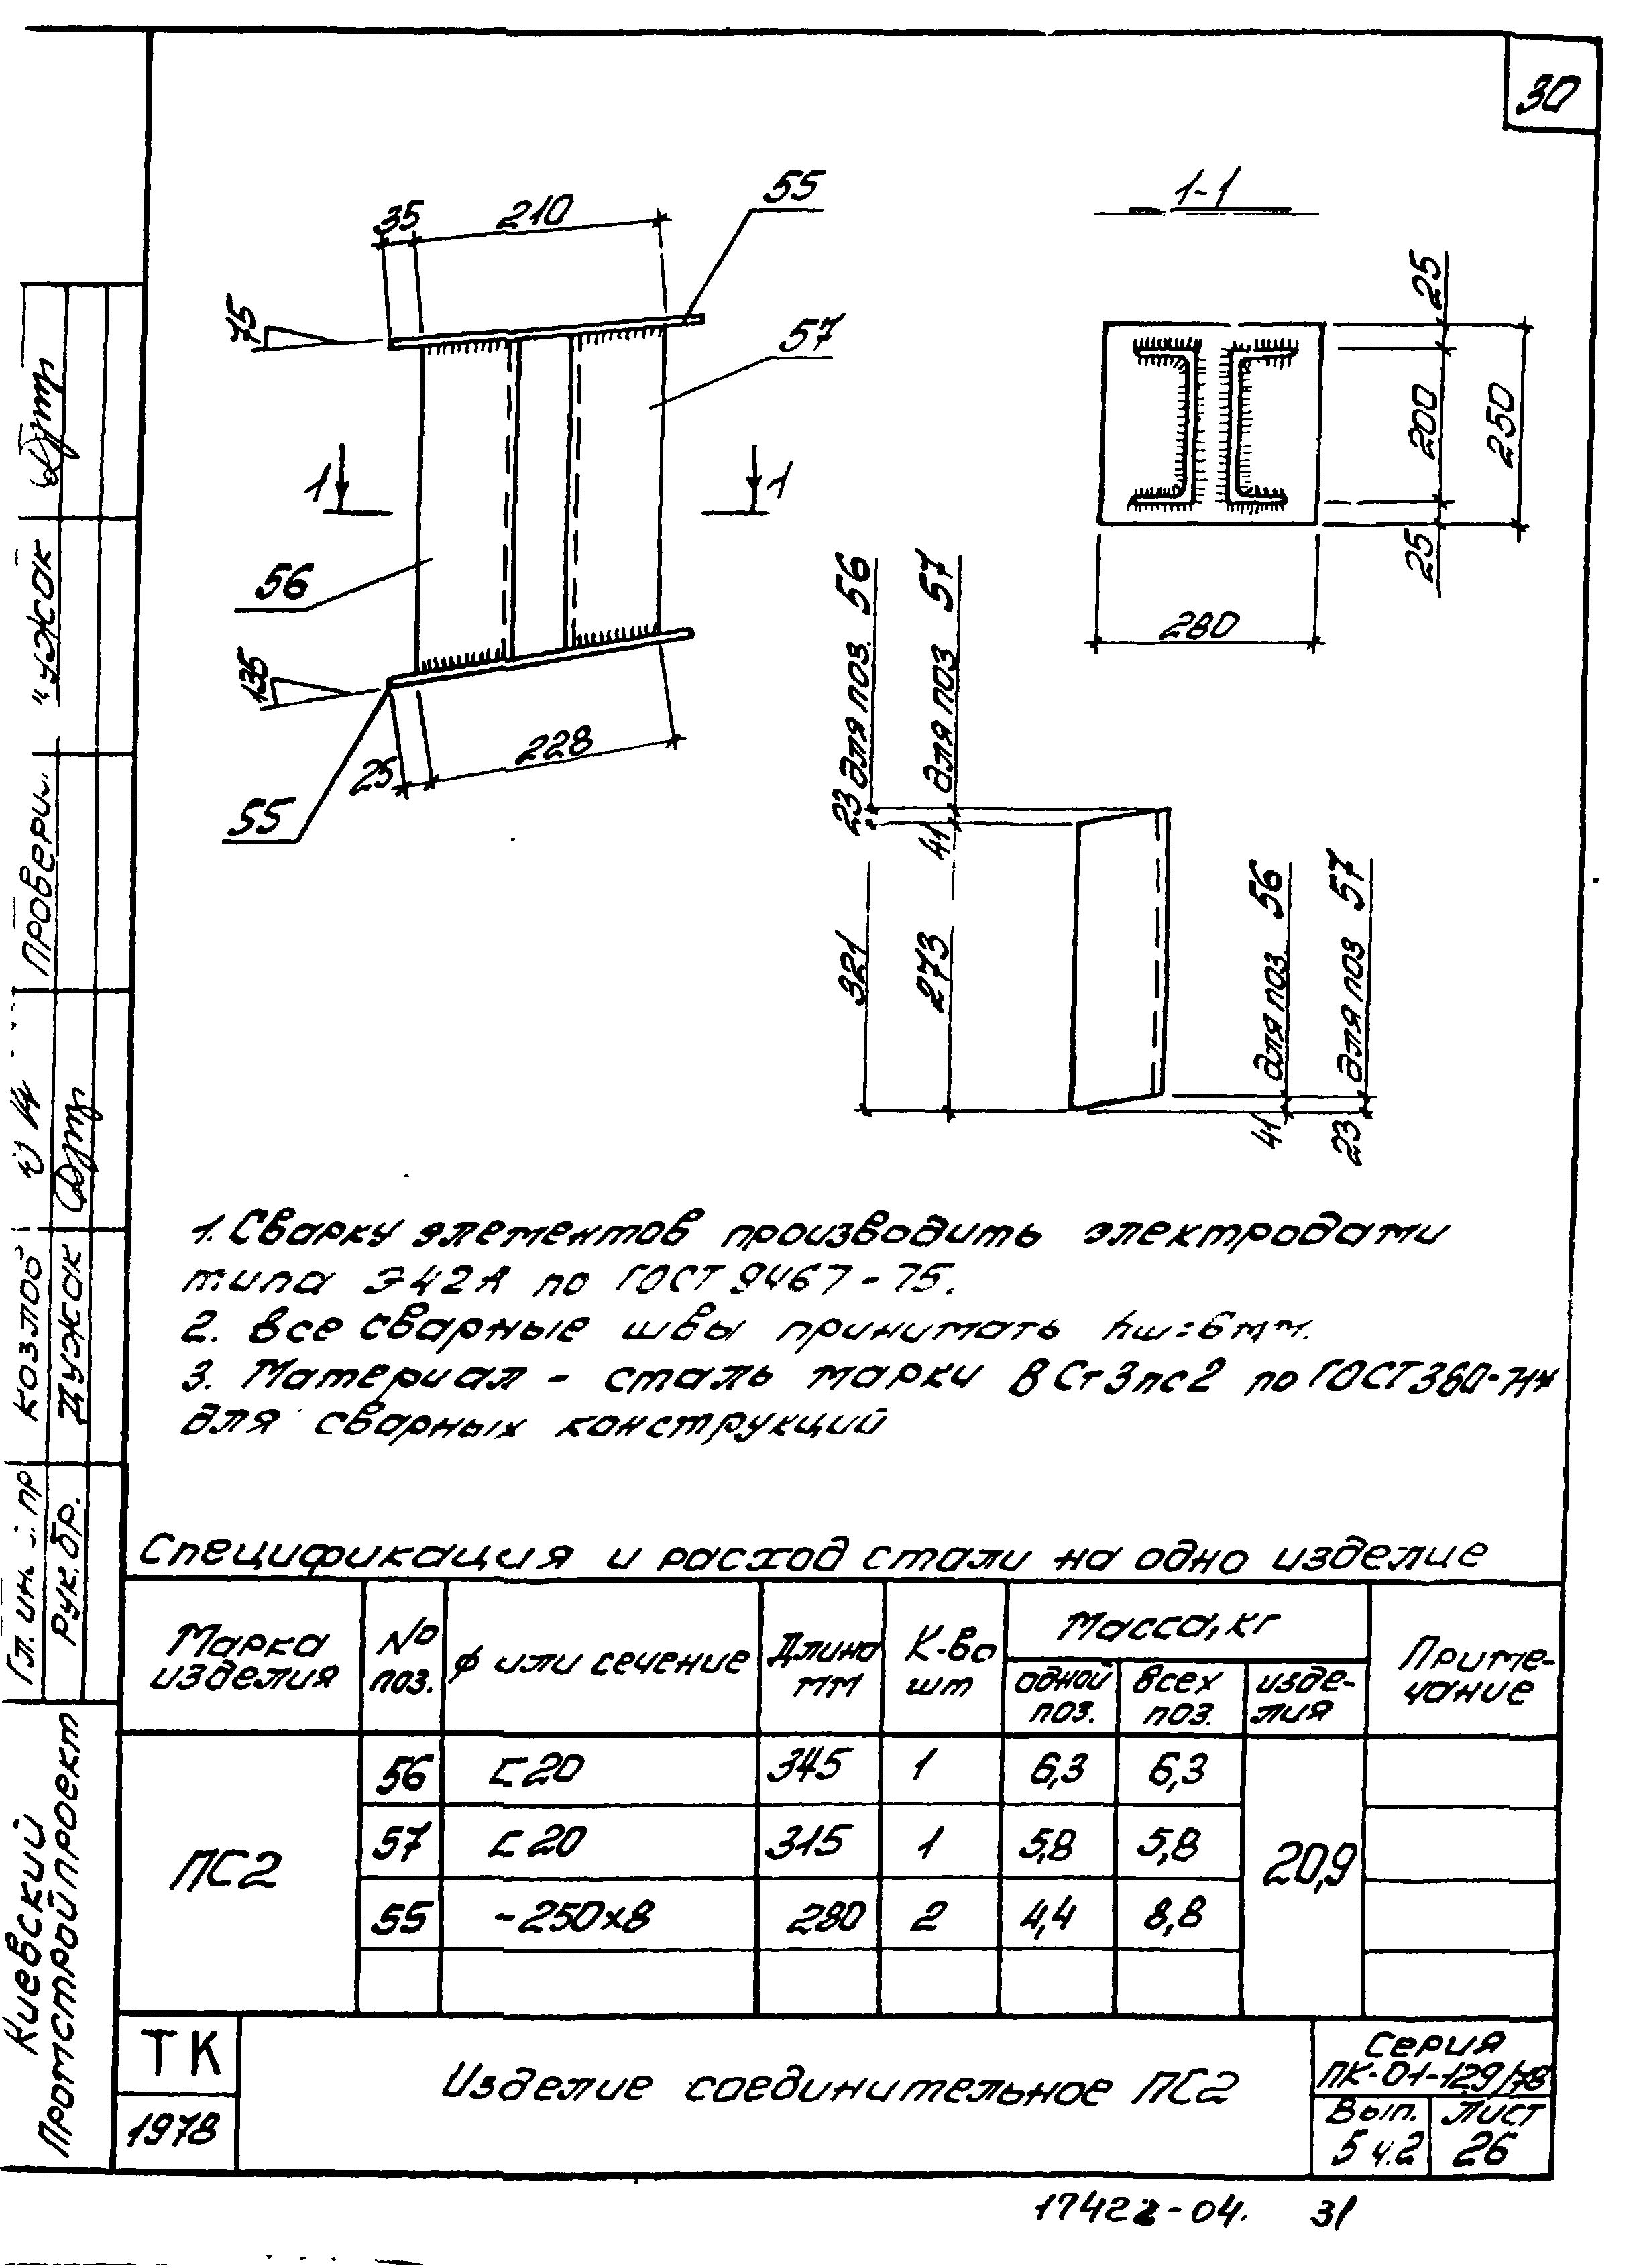 30
35
210
55
1-1
75
57
25
200
250
25
280
1
1
56
135
25
228
55
23 для поз. 56
41 для поз 57
321
273
41 для поз. 56
23 для поз 57
1. Сварку элементов производить электродами
типа Э42А по ГОСТ 9467-75.
2. Все сварные швы принимать hш=6мм.
3. Материал - сталь марки ВСт3пс2 по ГОСТ380-71*
для сварных конструкций
Спецификация и расход стали на одно изделие
Марка изделия
№ поз.
ф или сечение
Длина мм
К-во шт
Масса, кг
одной поз.
всех поз.
изде-лия
Приме-чание
ПС2
56 [20 345 1 6,3 6,3
57 [20 315 1 5,8 5,8
55 -250x8 280 2 4,4 8,8
20,9
ТК
1978
Изделие соединительное ПС2
Серия
ПК-01-129/78
Вып. Лист
5 ч.2 26
17422-04. 31
Козлов
Рук.бр. Дужак
Киевский
Промстройпроект